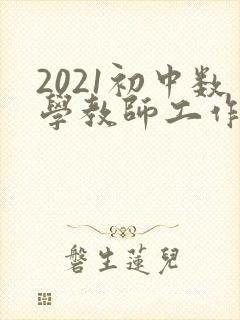 2021初中数
學教師工作
磐生蓮兒